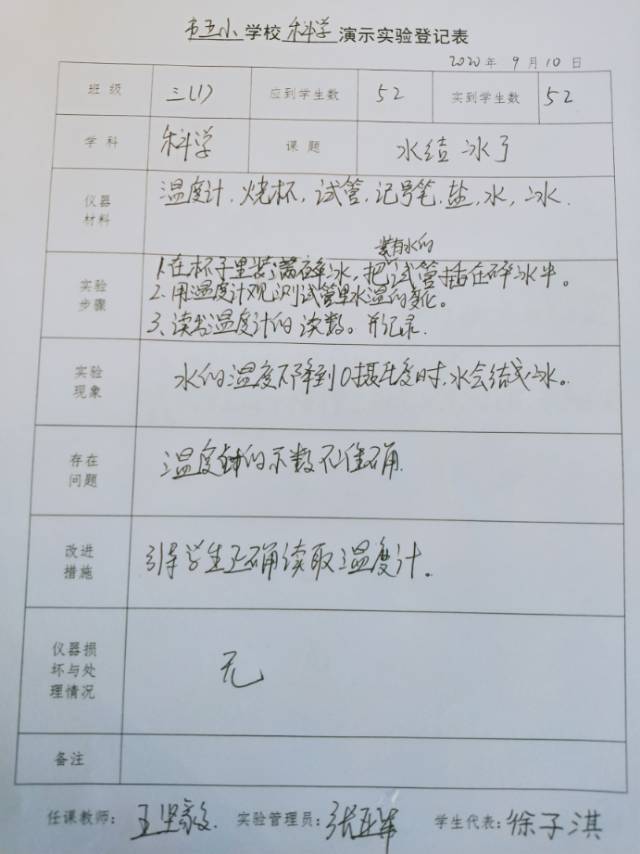 市五小学校科学演示实验登记表
2020年9月10日
班级 三(1) 应到学生数 52 实到学生数 52
学科 科学 课题 水结冰了
仪器材料 温度计，烧杯，试管，记号笔，盐，水，冰．
装有水的
实验步骤 1.在杯子里装满碎冰，把试管插在碎冰中。
2.用温度计观测试管里水温的变化。
3、读出温度计的读数。并记录．
实验现象 水的温度下降到0摄氏度时，水会结成冰。
存在问题 温度计的示数不准确．
改进措施 引导学生正确读取温度计。
仪器损坏与处理情况 无
备注
任课教师： 王坚毅 实验管理员： 学生代表：徐子淇